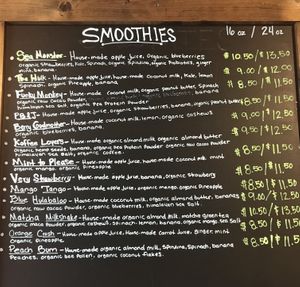 SMOOTHIES
16 oz / 24 oz
• Sea Monster - House-made apple juice, organic blueberries $10.50/$13.50
organic strawberries, kale, spinach, organic spirulina, organic probiotics, ginger
mint, banana
• The Hulk - House-made apple juice, house-made coconut milk, kale, lemon $9.00/$12.00
spinach, organic pineapple, banana
• Funky Monkey - House-made coconut milk, organic peanut butter, spinach $8.50/$11.50
organic raw cacao powder, banana
himalayan sea salt, organic pea protein powder
• PB&J - House-made apple juice, organic strawberries, banana, organic peanut butter $8.50/$11.50
• House-made coconut milk, lemon, organic cashews $9.00/$12.00
organic blueberries, banana,
• Koffee Lovers - House-made organic almond milk, organic almond butter $9.50/$12.50
organic hemp seeds, banana, organic pea protein powder organic raw cacao powder
himalayan sea salt, organic coffee.
• Mint to Please - House-made apple juice, house-made coconut milk, mint $8.50/$11.50
organic mango, organic pineapple
• Very Strawberry - House-made apple juice, banana, organic strawberry $8.50/$11.50
• Mango Tango - House-made apple juice, organic mango, organic pineapple $8.50/$11.50
• Blue Hulabaloo - House-made coconut milk, organic almond butter, banana $9.00/$12.50
organic raw cacao powder, organic blueberries, himalayan sea salt.
• Matcha Milkshake - House-made organic almond milk, matcha green tea $10.50/$13.50
organic maca powder, organic cashews, spinach, lemon, banana, organic mango, sea salt
• Orange Crush - House-made apple juice, house-made carrot juice, ginger, mint $8.50/$11.50
organic pineapple.
Peach Bum - House-made organic almond milk, spirulina, spinach, banana $8.50/$11.5
peaches, organic bee pollen, organic coconut flakes.